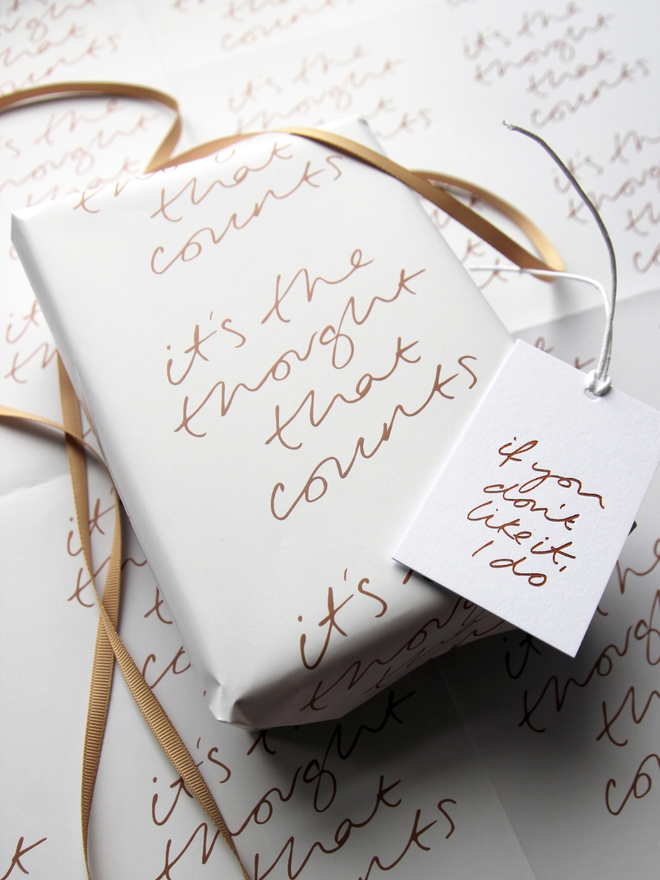 counts
counts
it's the
thought
that
counts
it's the
thought
that
counts
it's the
thought
that
counts
if you
don't
like it,
I do
it's
thought
it's the
thought
that
counts